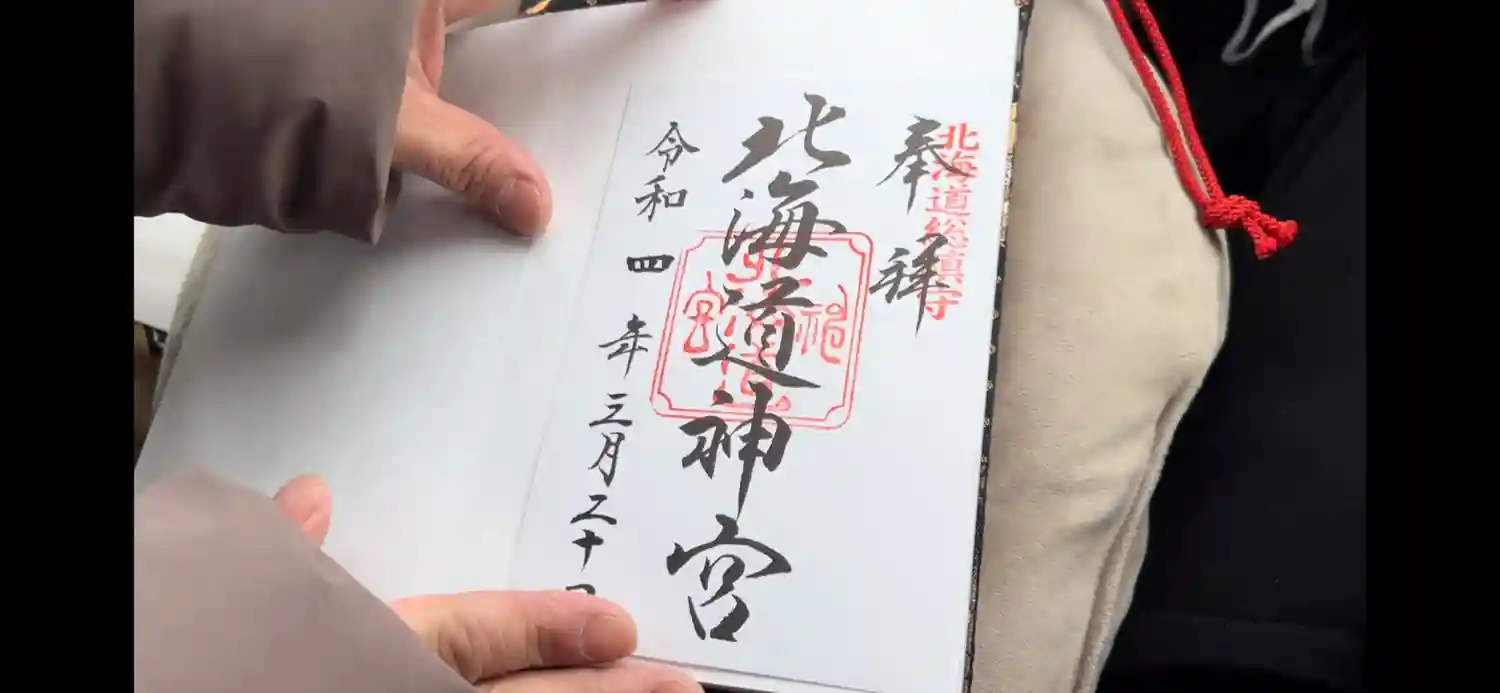 北海道総鎮守
奉拝
北海道神宮
令和四年三月二十日